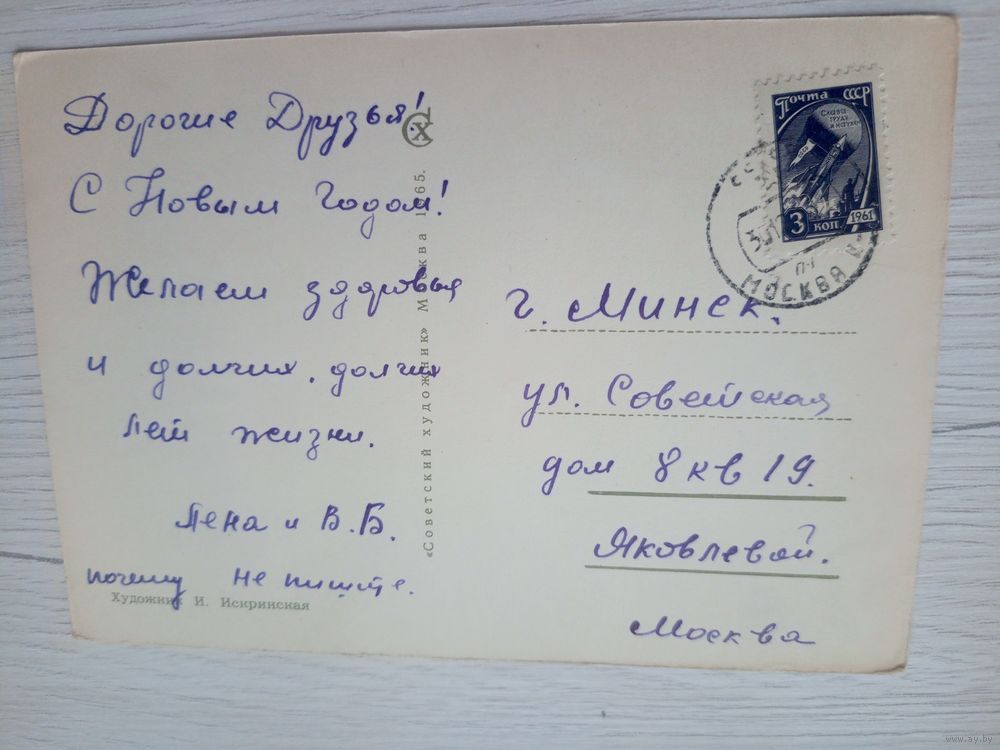 Дорогие Друзья!
С Новым Годом!
Желаем здоровья
и долгих, долгих
лет жизни.
Лена и В.Б.
почему не пишите.
Художник И. Искринская
«Советский художник» Москва 1965.
СХ
Почта СССР
Слава
труду
и науке
3 коп 1961
МОСКВА
г. Минск.
ул. Советская
дом 8 кв 19.
Яковлевой.
Москва
www.ay.by